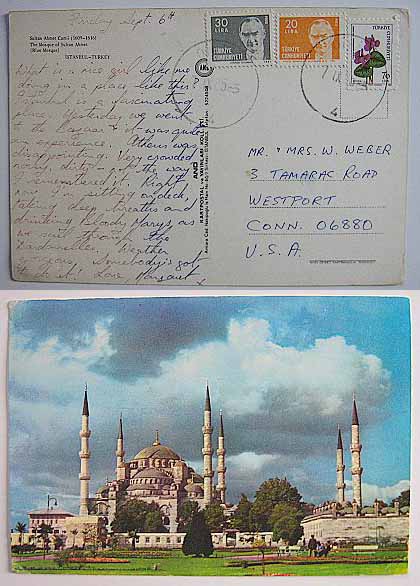 Friday Sept. 6th
Sultan Ahmet Camii (1609-1616)
The Mosque of Sultan Ahmet
(Blue Mosque)
İSTANBUL - TURKEY
What is a nice girl like me
doing in a place like this?
Istanbul is a fascinating
place. Yesterday we went
to the Bazaar & it was quite
an experience. Athens was
disappointing. Very crowded
noisy, dirty - not the way
I remembered it. Right
now I'm sitting on deck,
taking deep breaths and
drinking Bloody Marys, as
we sail through the
Dardanelles. Weather
gorgeous. Somebody's got
to do it! Love Margaret
30
LIRA
TÜRKİYE
CUMHURİYETİ
20
LIRA
TÜRKİYE
CUMHURİYETİ
TÜRKİYE
CUMHURİYETİ
70
AND
KARTPOSTAL ve YAYINLARI KOLL. ŞTİ.
MR. & MRS. W. WEBER
3 TAMARAC ROAD
WESTPORT
CONN. 06880
U.S.A.